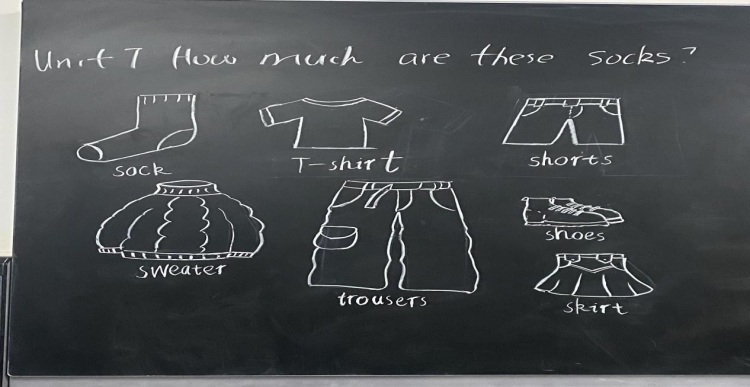 Unit 7 How much are these socks?
sock
T-shirt
shorts
sweater
trousers
shoes
skirt